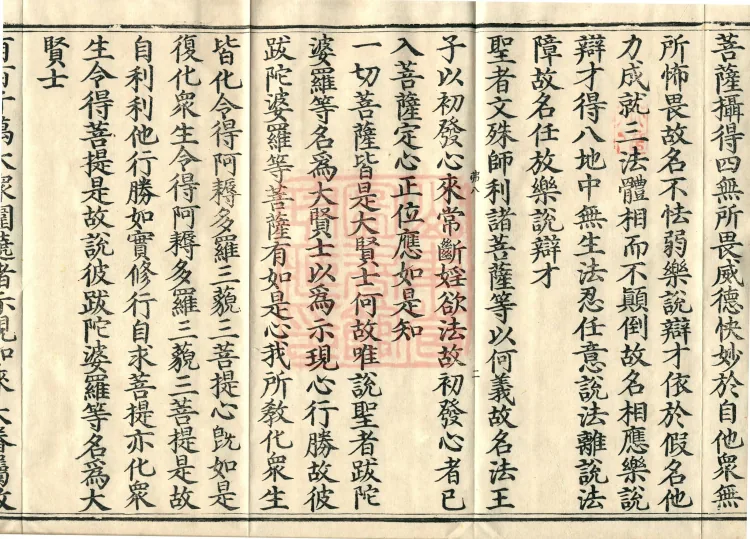 菩薩攝得四無所畏威德快妙於自他衆無
所怖畏故名不怯弱樂說辯才依於假名他
力成就三法體相而不顛倒故名相應樂說
辯才得八地中無生法忍任意說法離說法
障故名任放樂說辯才
聖者文殊師利諸菩薩等以何義故名法王
子以初發心來常斷婬欲法故初發心者已
入菩薩定心正位應如是知
一切菩薩皆是大賢士何故唯說聖者跋陀
婆羅等名爲大賢士以爲示現心行勝故彼
跋陀婆羅等菩薩有如是心我所教化衆生
皆化令得阿耨多羅三藐三菩提心旣如是
復化衆生令得阿耨多羅三藐三菩提是故
自利利他行勝如實修行自求菩提亦化衆
生令得菩提是故說彼跋陀婆羅等名爲大
賢士
百百千萬大衆圍遶者示現如來大眷屬故